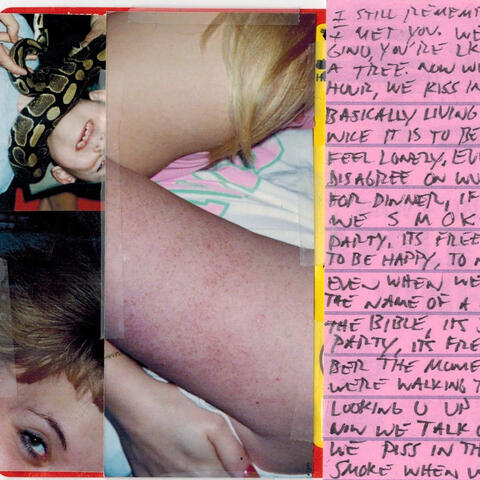 I STILL REMEM
I MET YOU. WE
GINO, YOU'RE LK
A TREE. NOW W
HOUR, WE KISS IN
BASICALLY LIVING
NICE IT IS TO BE
FEEL LONELY, EV
DISAGREE ON W
FOR DINNER, IF
WE SMOK
PARTY, ITS FREE
TO BE HAPPY, TO
EVEN WHEN WE
THE NAME OF A
THE BIBLE, ITS
PARTY, ITS FRE
BER THE MOME
WERE WALKING T
LOOKING U UP
NOW WE TALK
WE PISS IN TH
SMOKE WHEN W